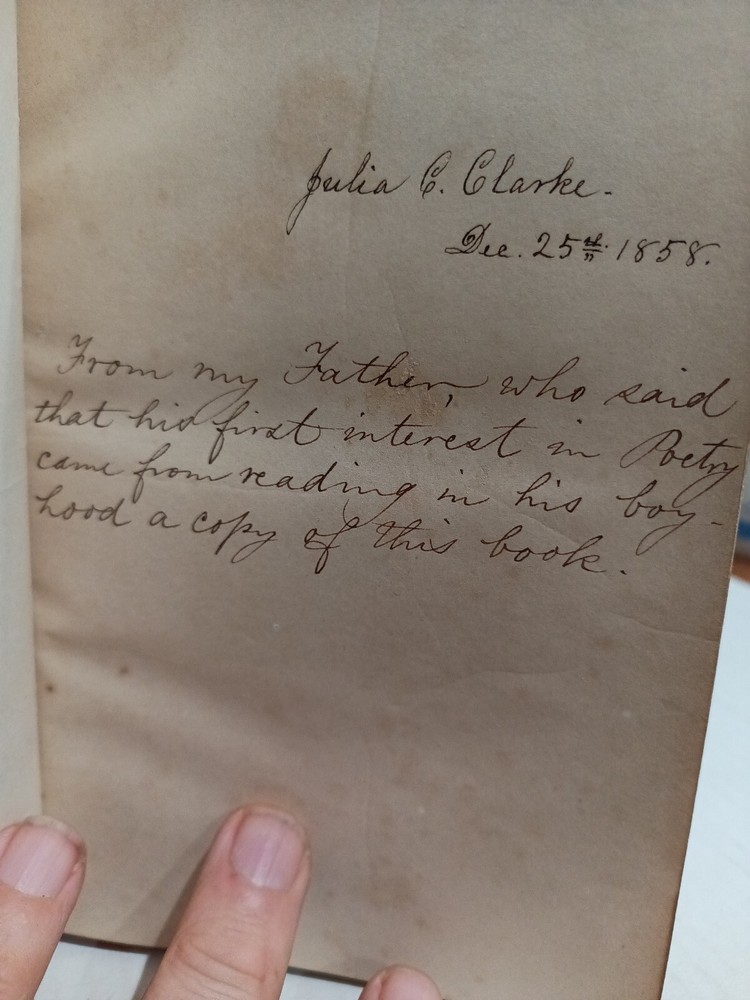 Julia C. Clarke.
Dec. 25th. 1858.
From my Father, who said
that his first interest in Poetry
came from reading in his boy-
hood a copy of this book.